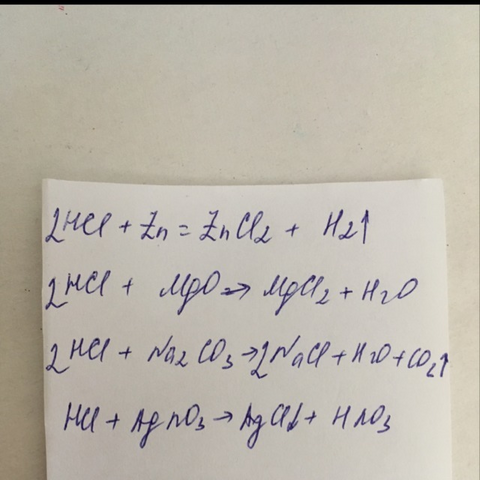 2HCl + Zn = ZnCl2 + H2↑
2HCl + MgO → MgCl2 + H2O
2HCl + Na2CO3 → 2NaCl + H2O + CO2↑
HCl + AgNO3 → AgCl↓ + HNO3